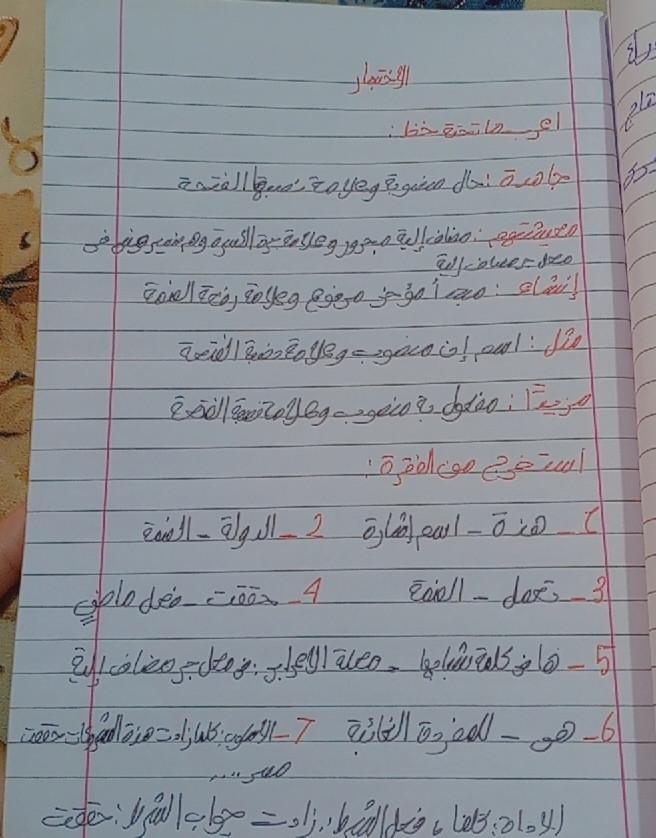 الاختبار
اعرب ما تحته خط :
جاهدة : حال منصوبة وعلامة نصبها الفتحة
معيشتهم : مضاف إلية مجرور وعلامة جرة الكسرة وهم ضمير مبنى فى
محل جر مضاف إلية
إنشاء : مبتدأ مؤخر مرفوع وعلامة رفعة الضمة
مثل : اسم إن منصوب وعلامة نصبة الفتحة
مزيدًا : مفعول بة منصوب وعلامة نصبة الفتحة
استخرج من الفقرة :
1 - هذة - اسم إشارة 2 - الدولة - الضمة
3 - تعمل - الضمة 4 - حققت - فعل ماضي
5 - ها فى كلمة شبابها - محلة الاعرابى : فى محل جر مضاف إلية
6 - هى - للمفردة الغائبة 7 - الاسلوب : كلما زادت هذة الشركات حققت
مصر ....
الاداة : كلما ، فعل الشرط : زادت جواب الشرط : حققت